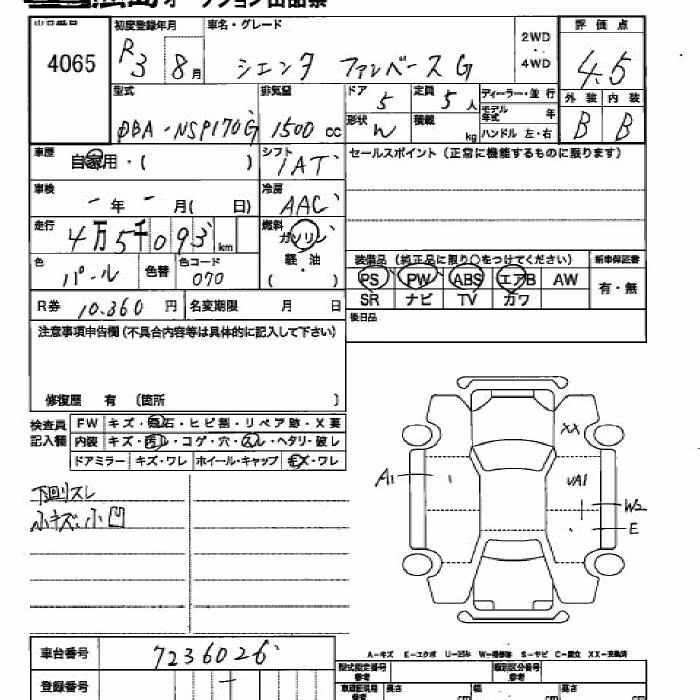 オークション出品票
出品番号 初度登録年月 車名・グレード 2WD ・ 4WD 評価点
4065 R3 8月 シエンタ ファンベースG 4.5
型式 排気量 ドア 5 定員 5人 ディーラー・並行 外装 内装
モデル年式 年
DBA-NSP170G 1500cc 形状 W 積載 kg ハンドル 左・右 B B
車歴 自家用・( ) シフト IAT セールスポイント (正常に機能するものに限ります)
車検 年 月( 日) 冷房 AAC
走行 4万5千093km 燃料 ガソリン
軽・油
( )
装備品 (純正品に限り○をつけてください) 新車保証書
色 パール 色替 色コード 070 PS PW ABS エアB AW 有・無
R券 10.360円 名変期限 月 日 SR ナビ TV カワ
後日品
注意事項申告欄(不具合内容等は具体的に記入して下さい)
修復歴 有 〔箇所 〕
検査員記入欄 FW キズ・飛石・ヒビ割・リペア跡・X要
内装 キズ・・コゲ・穴・スレ・ヘタリ・破レ
ドアミラー キズ・ワレ ホイール・キャップ キズ・ワレ
XX
A1
UA1
W2
E
下回リスレ
小キズ、小凹
A-キズ E-エクボ U-凹み W-補修跡 S-サビ C-腐食 XX-交換済
車台番号 7236026
型式指定番号 参考 類別区分番号 参考
登録番号 参考 長さ cm 幅 cm 高さ cm